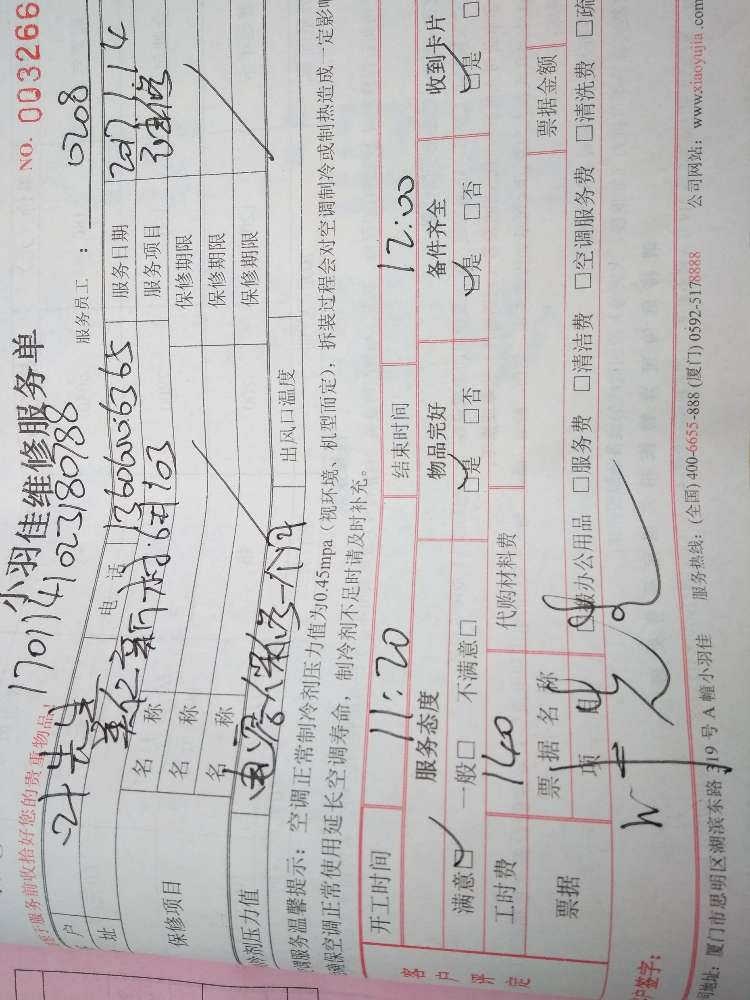 NO. 003266
小羽佳维修服务单
17011410223180788
服务员工： 0208
于服务前收拾好您的贵重物品！
户 先生 电话 13606006365 服务日期 2017.1.14
址 新村 103 服务项目 维修
保修项目
名称 保修期限
名称 保修期限
名称 保修期限
剂压力值 保修一个月 出风口温度
调服务温馨提示：空调正常制冷剂压力值为0.45mpa（视环境、机型而定），拆装过程会对空调制冷或制热造成一定影响
确保空调正常使用延长空调寿命，制冷剂不足时请及时补充。
客户评定
开工时间 11:20 结束时间 12:00
服务态度 物品完好 备件齐全 收到卡片
满意☑ 一般□ 不满意□ ☑是 □否 ☑是 □否 ☑是 □
工时费 140 代购材料费
票据 票据名称 票据金额
项目 办公用品 □服务费 □清洁费 □空调服务费 □清洗费 □疏
户签字：
地址：厦门市思明区湖滨东路319号A幢小羽佳 服务热线：(全国) 400-6655-888 (厦门) 0592-5178888 公司网站：www.xiaoyujia.com